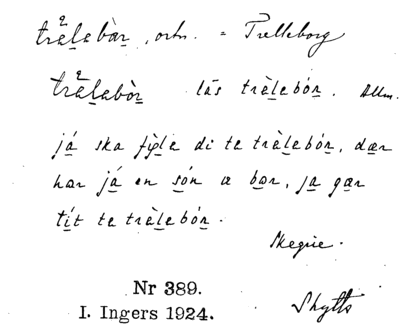 trälebàr, ortn. = Trelleborg
trälebòr läs trèlebón. Allm.
já ska fylle di te trèlebón, dær
har já en són a bor, ja gær
tít te trèlebón.
Skegrie.
Nr 389.
I. Ingers 1924.
Skytts